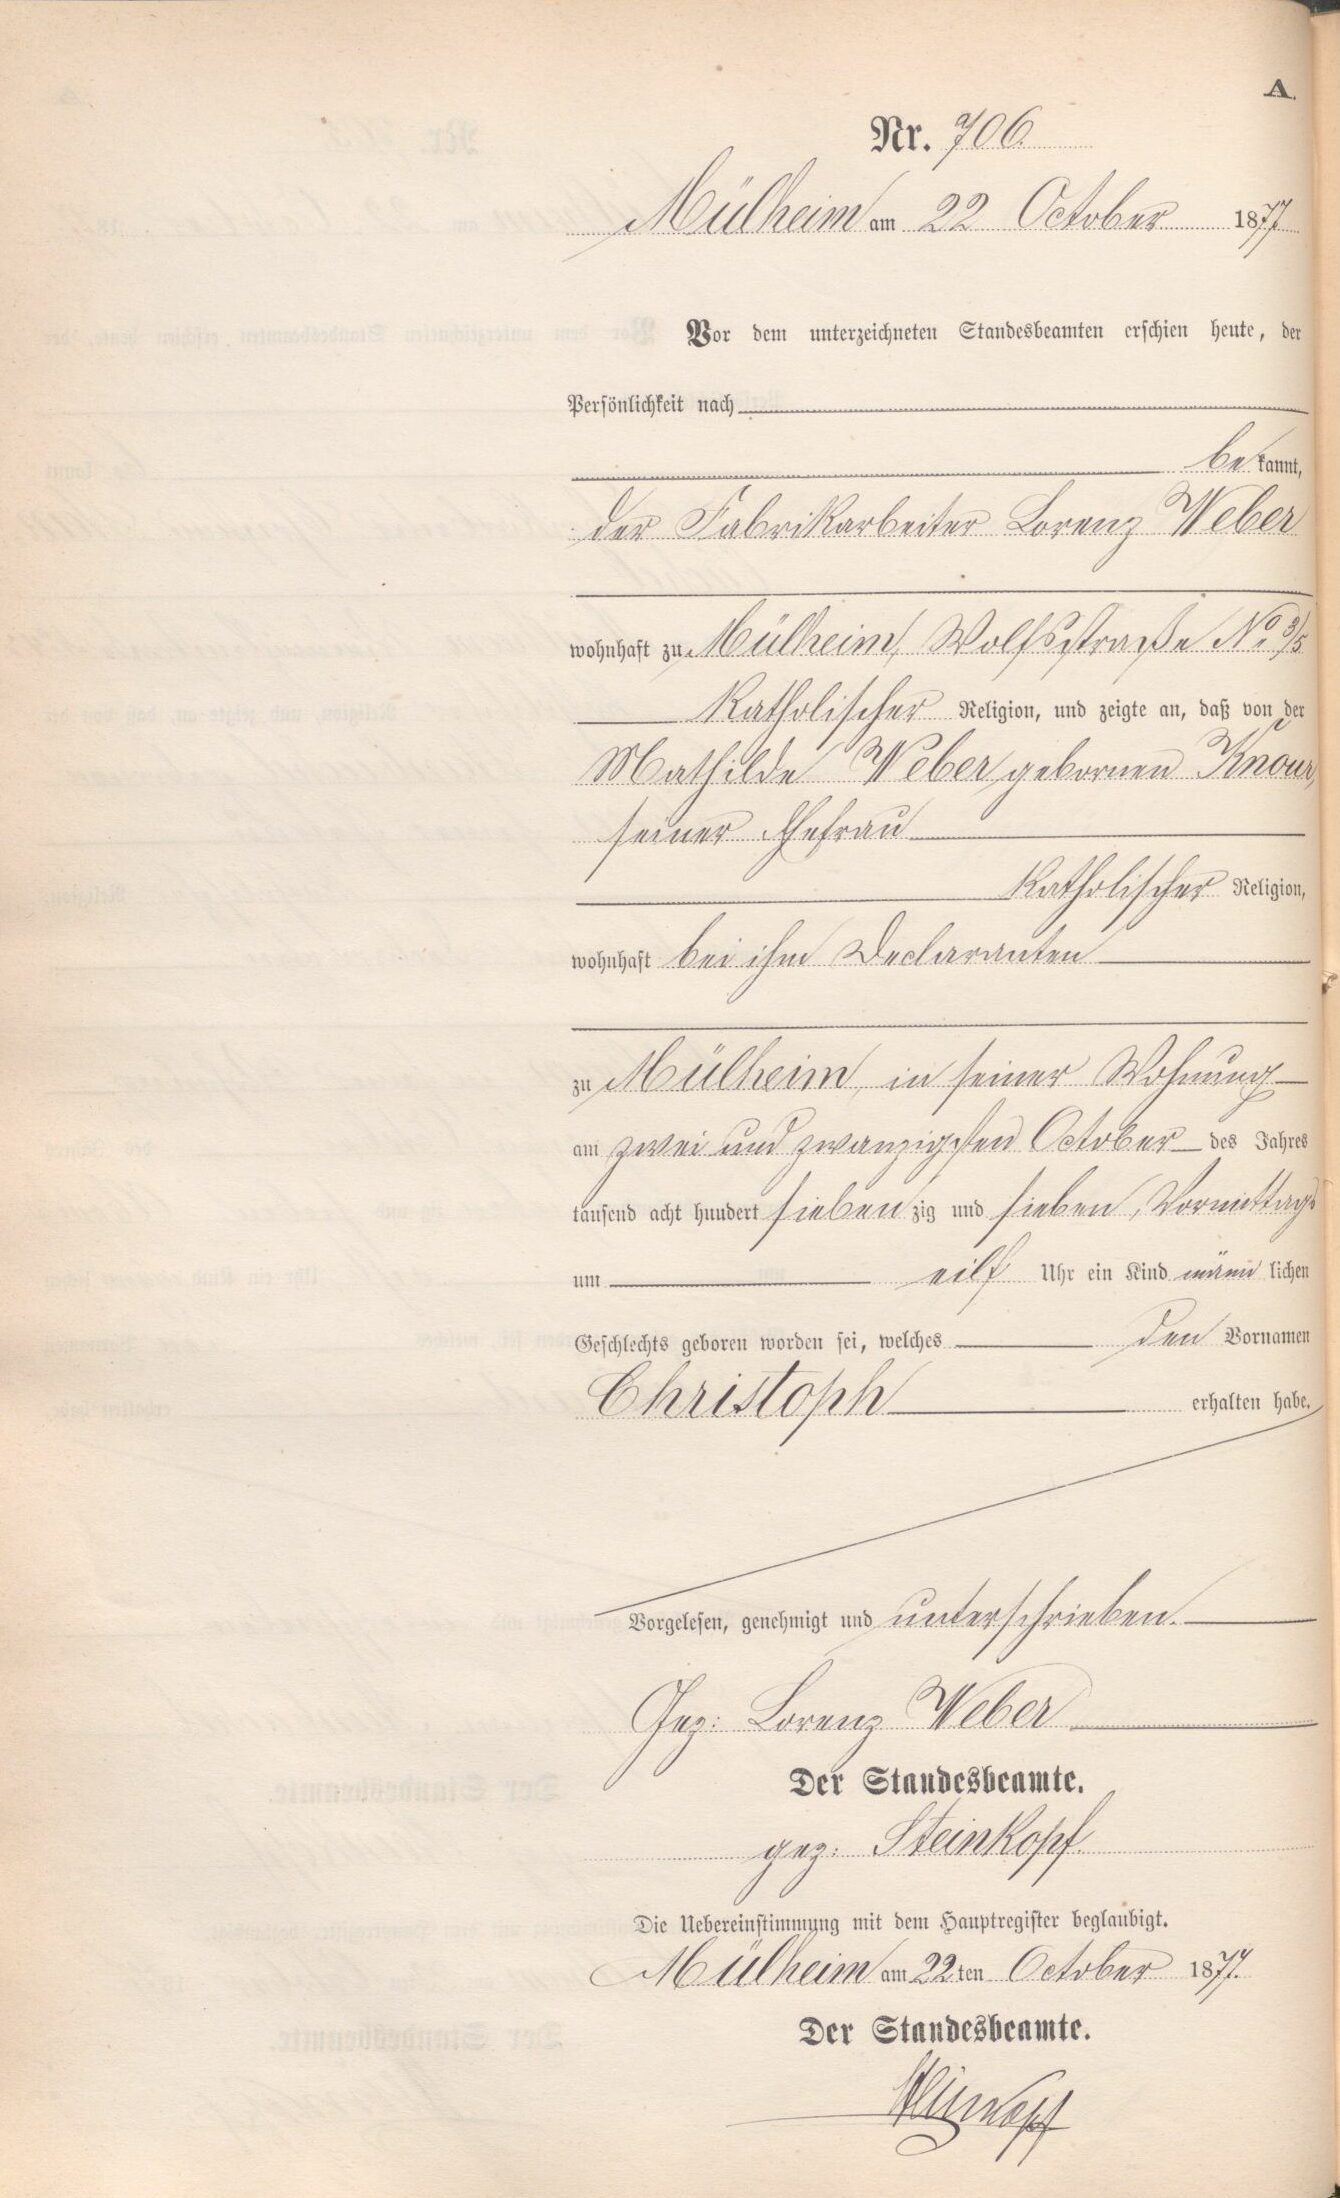 A.
Nr. 706.
Mülheim am 22 October 1877
Vor dem unterzeichneten Standesbeamten erschien heute, der
Persönlichkeit nach
be kannt,
der Fabrikarbeiter Lorenz Weber
wohnhaft zu Mülheim, Wolfsstraße No. 3/5
katholischer Religion, und zeigte an, daß von der
Mathilde Weber gebornen Knour,
seiner Ehefrau
katholischer Religion,
wohnhaft bei ihm Declaranten
zu Mülheim, in seiner Wohnung
am zwei und zwanzigsten October des Jahres
tausend acht hundert siebenzig und sieben, Vormittags
um eilf Uhr ein Kind männlichen
Geschlechts geboren worden sei, welches den Vornamen
Christoph erhalten habe.
Vorgelesen, genehmigt und unterschrieben.
Gez: Lorenz Weber
Der Standesbeamte.
gez: Steinkopf.
Die Uebereinstimmung mit dem Hauptregister beglaubigt.
Mülheim am 22ten October 1877.
Der Standesbeamte.
Steinkopf